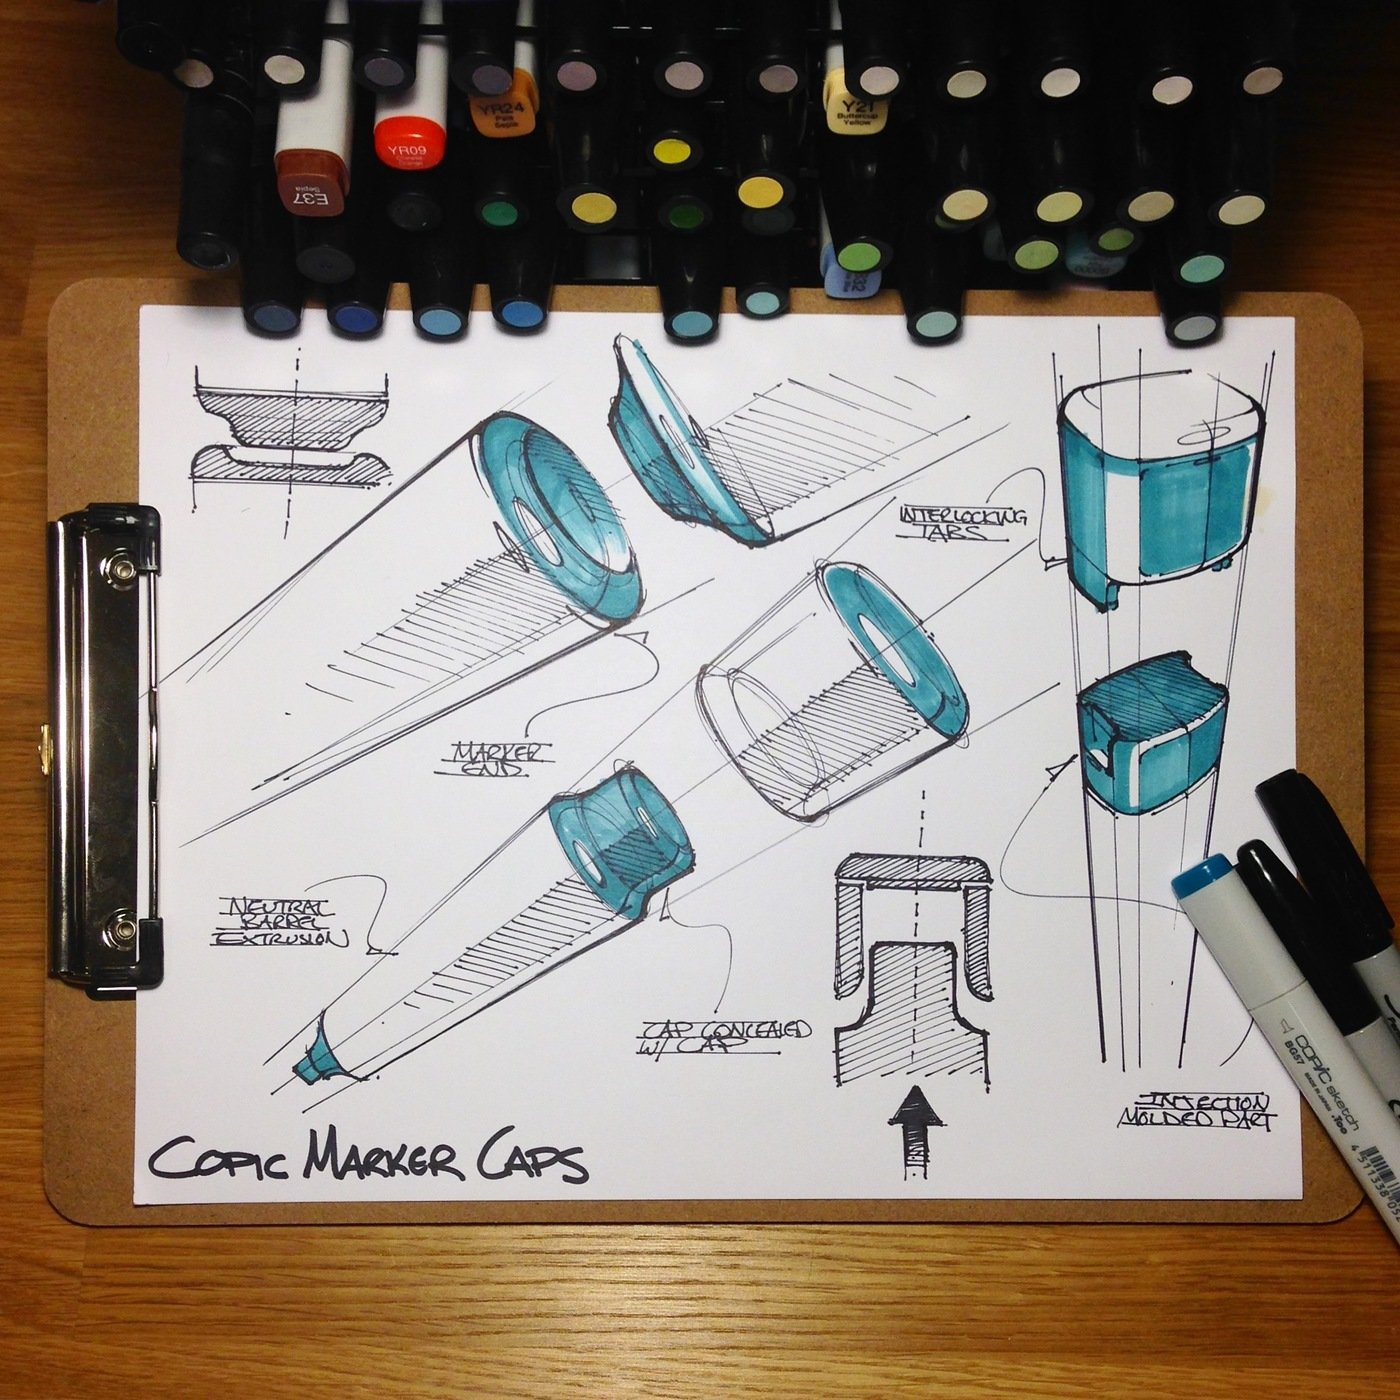 YR24
Pale
Sepia
Y21
Buttercup
Yellow
YR09
E37
Sepia
INTERLOCKING
TABS
MARKER
END
NEUTRAL
BARREL
EXTRUSION
CAP CONCEALED
W/ CAP
INJECTION
MOLDED PART
COPIC MARKER CAPS
COPIC sketch
BG57 MADE IN JAPAN .Too